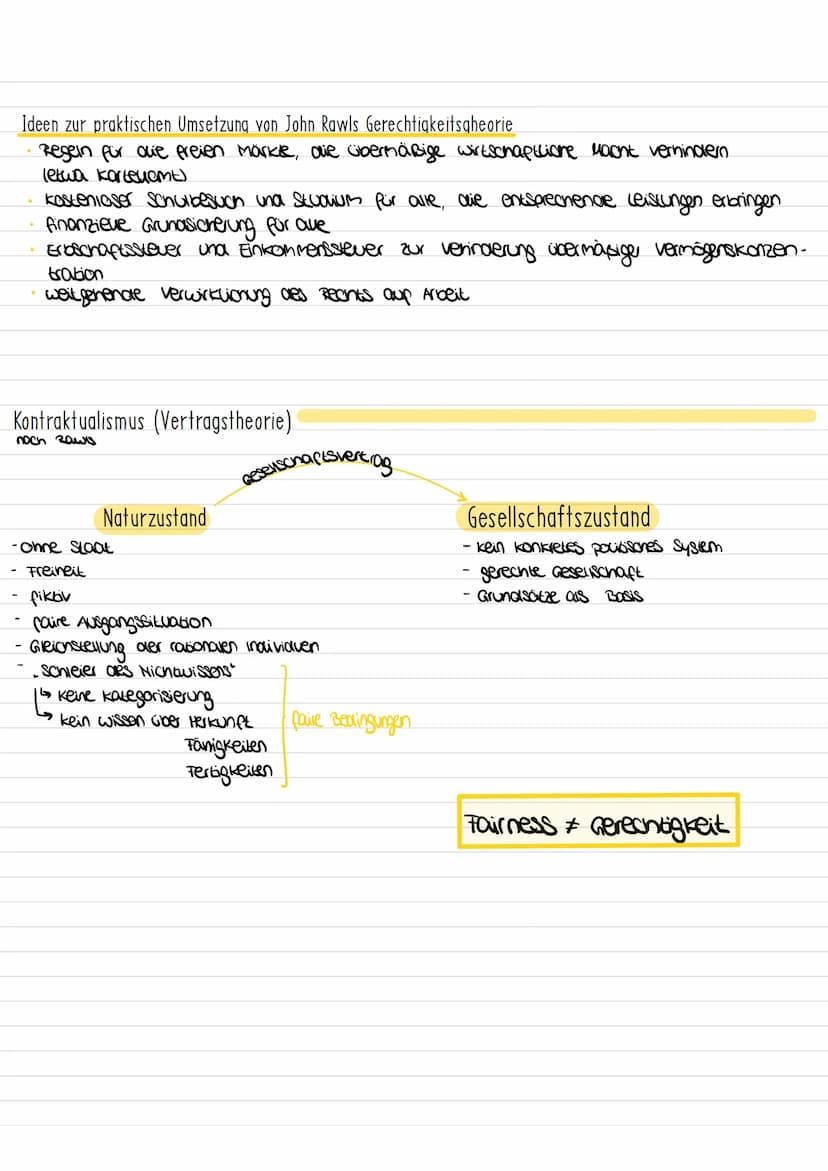 Ideen zur praktischen Umsetzung von John Rawls Gerechtigkeitsqheorie
• Regeln für die freien Märkte, die übermäßige wirtschaftliche Macht verhindern
(etwa Kartellamt)
• kostenloser Schulbesuch und Studium für alle, die entsprechende Leistungen erbringen
• finanzielle Grundsicherung für alle
• Erbschaftssteuer und Einkommenssteuer zur Verhinderung übermäßiger Vermögenskonzen-
tration
• weitgehende Verwirklichung des Rechts auf Arbeit
Kontraktualismus (Vertragstheorie)
nach Rawls
Gesellschaftsvertrag
Naturzustand
- ohne Staat
- Freiheit
- fiktiv
- faire Ausgangssituation
- Gleichstellung der rationalen Individuen
- „Schleier des Nichtwissens"
↳ keine Kategorisierung
↳ kein wissen über Herkunft
Fähigkeiten
Fertigkeiten
faire Bedingungen
Gesellschaftszustand
- kein konkretes politisches System
- gerechte Gesellschaft
- Grundsätze als Basis
Fairness ≠ Gerechtigkeit